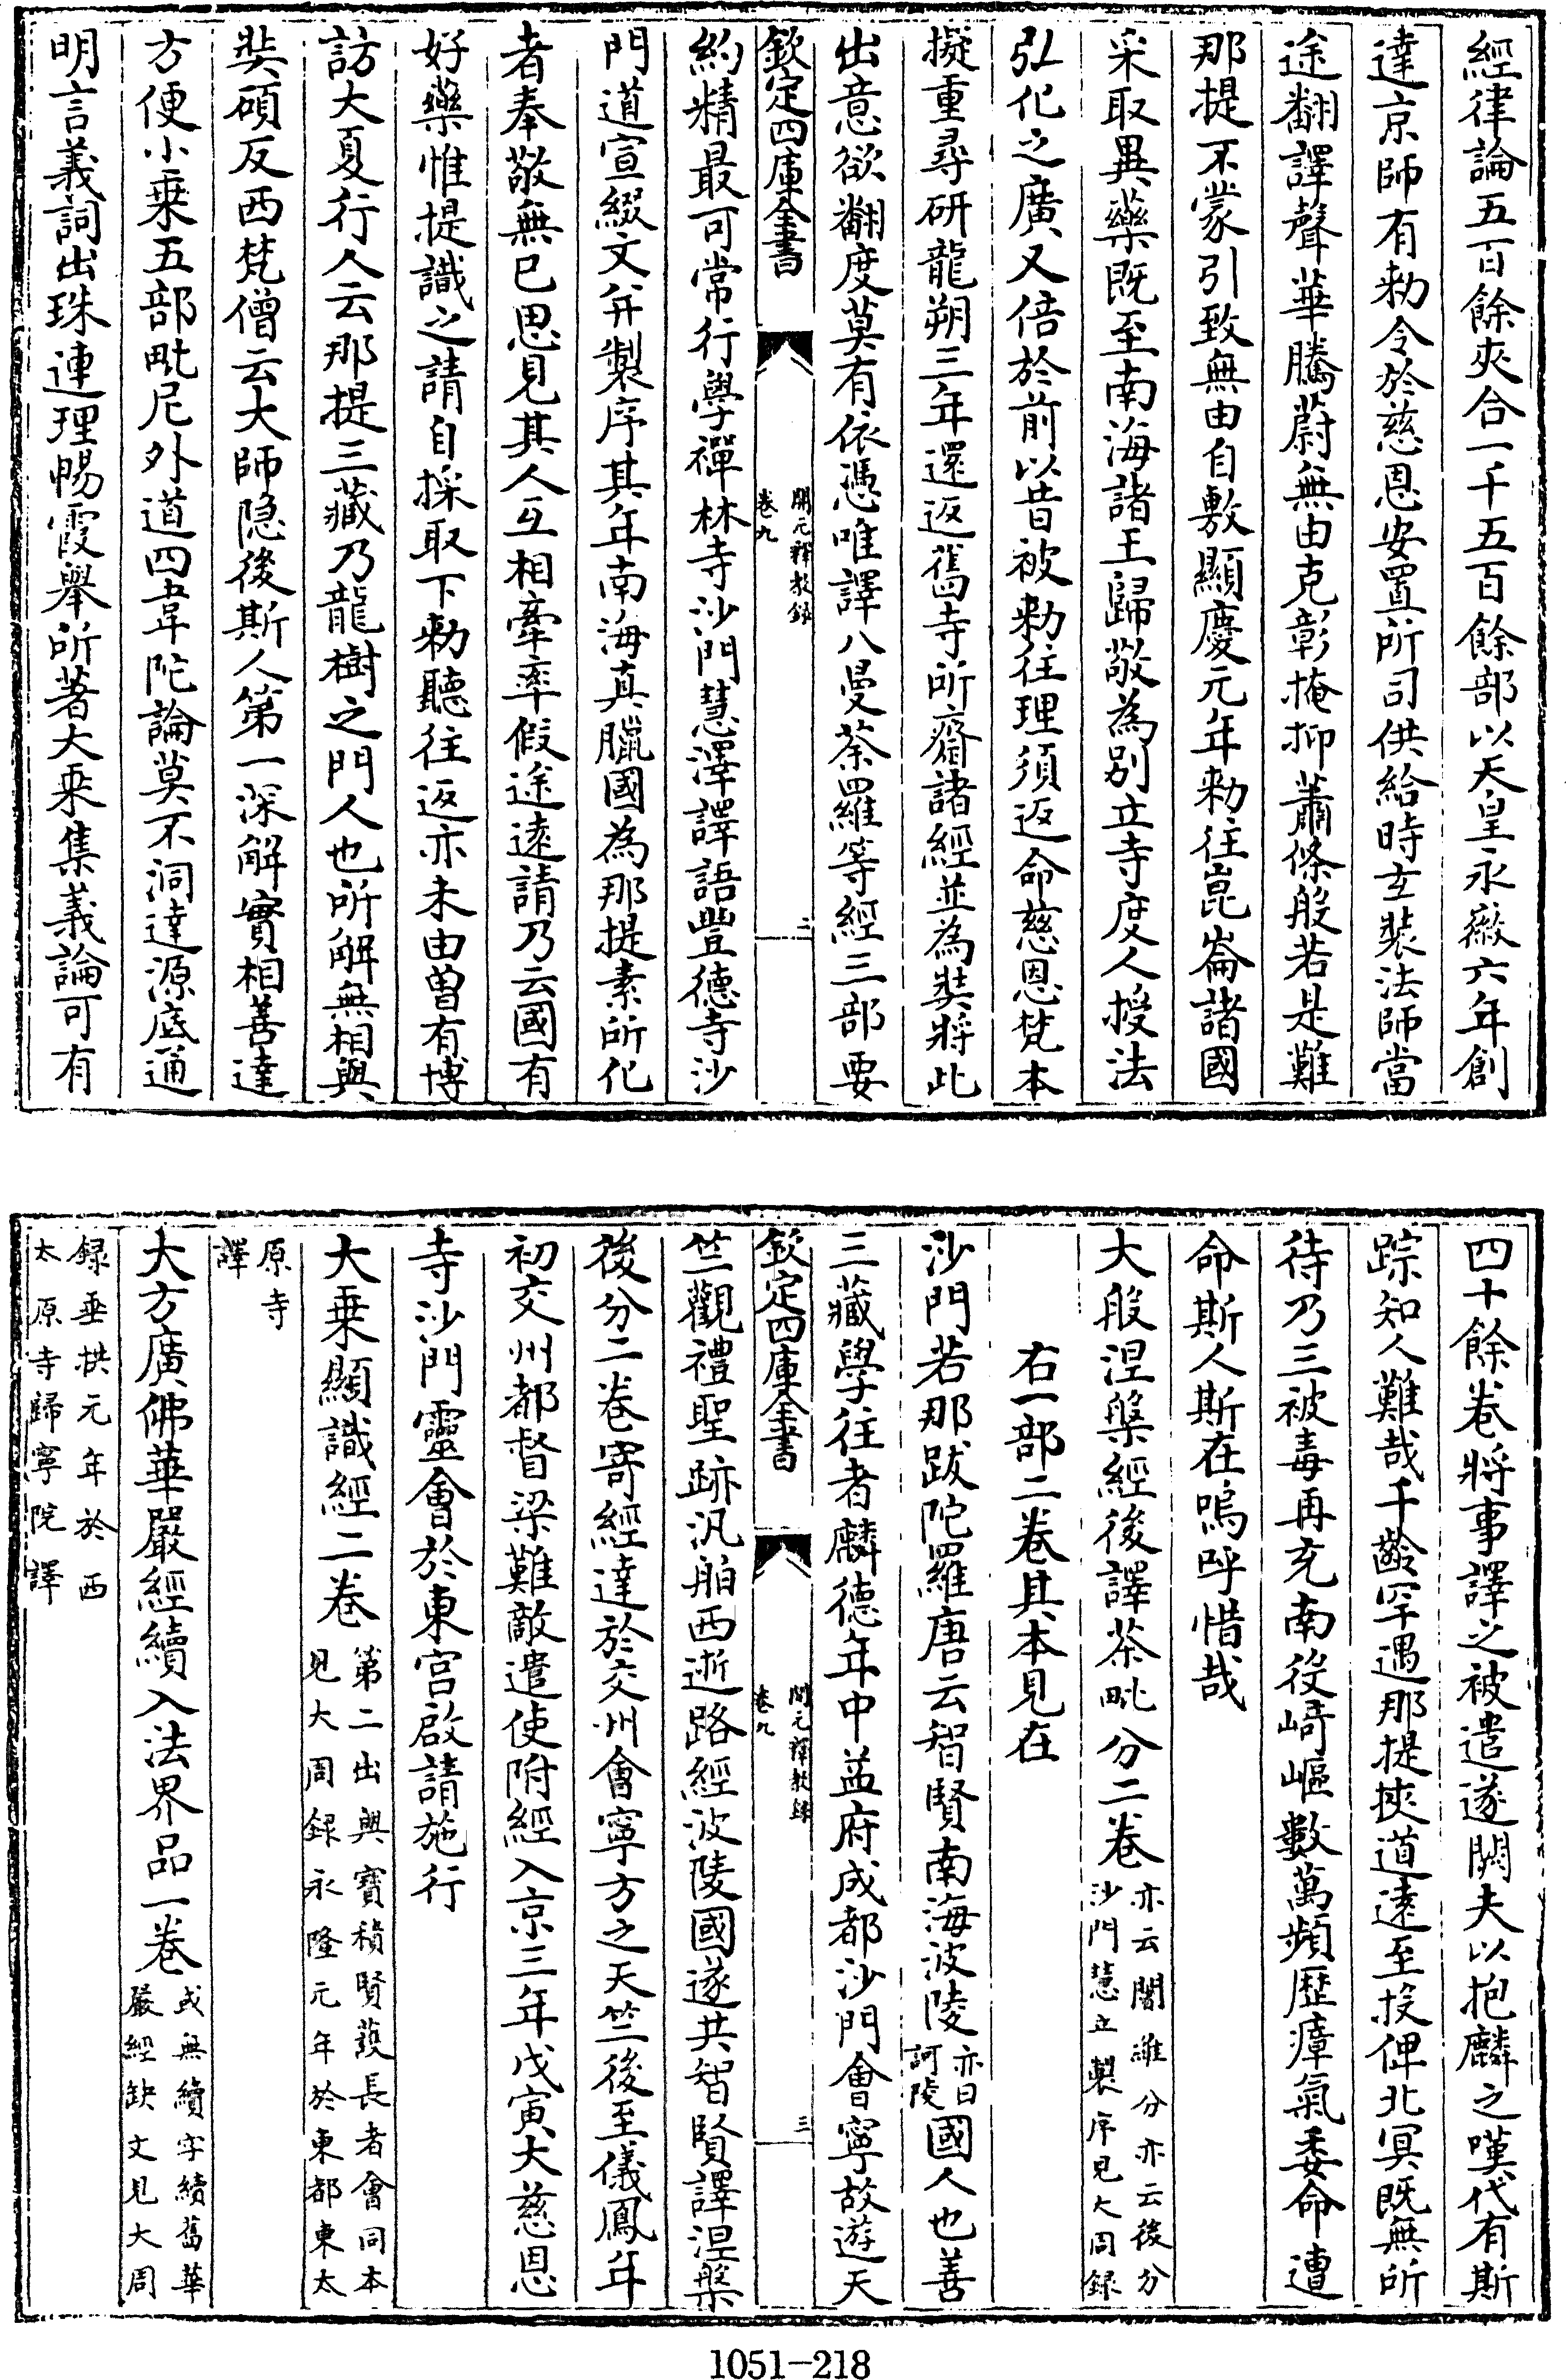 經律論五百餘夾合一千五百餘部以天皇永徽六年創
達京師有勅令於慈恩安置所司供給時玄裝法師當
途翻譯聲華騰蔚無由克彰掩抑蕭條般若是難
那提不蒙引致無由自敷顯慶元年勅往崑崙諸國
采取異藥既至南海諸王歸敬為别立寺度人授法
弘化之廣又倍於前以昔被勅往理須返命慈恩梵本
擬重尋研龍朔三年還返舊寺所齎諸經並為奘將此
出意欲翻度莫有依憑唯譯八曼荼羅等經三部要
欽定四庫全書
開元釋教録
卷九
二
約精最可常行學禪林寺沙門慧澤譯語豐德寺沙
門道宣綴文并製序其年南海真臘國為那提素所化
者奉敬無已思見其人互相牽率假途遠請乃云國有
好藥惟提識之請自採取下勅聽往返亦未由曾有博
訪大夏行人云那提三藏乃龍樹之門人也所解無相與
奘碩反西梵僧云大師隐後斯人第一深解實相善達
方便小乗五部毗尼外道四韋陀論莫不洞達源底通
明言義詞出珠連理暢霞舉所著大乗集義論可有
四十餘卷將事譯之被遣遂闕夫以抱麟之嘆代有斯
踪知人難哉千齡罕遇那提挾道遠至投俾北冥既無所
待乃三被毒再充南役崎嶇數萬頻歷瘴氣委命遭
命斯人斯在嗚呼惜哉
大般涅槃經後譯荼毗分二卷亦云闍維分亦云後分
沙門慧立製序見大周録
右一部二卷其本見在
沙門若那跋陀羅唐云智賢南海波陵亦曰
訶陵國人也善
三藏學往者麟德年中益府成都沙門會寧故遊天
欽定四庫全書
開元釋教録
卷九
三
竺觀禮聖跡汎舶西逝路經波陵國遂共智賢譯涅槃
後分二卷寄經達於交州會寧方之天竺後至儀鳳年
初交州都督梁難敵遣使附經入京三年戊寅大慈恩
寺沙門靈會於東宫啟請施行
大乗顯識經二卷第二出與寶積賢䕶長者會同本
見大周録永隆元年於東都東太
原寺
譯
大方廣佛華嚴經續入法界品一卷或無續字續舊華
嚴經缺文見大周
録垂拱元年於西
太原寺歸寧院譯
1051-218